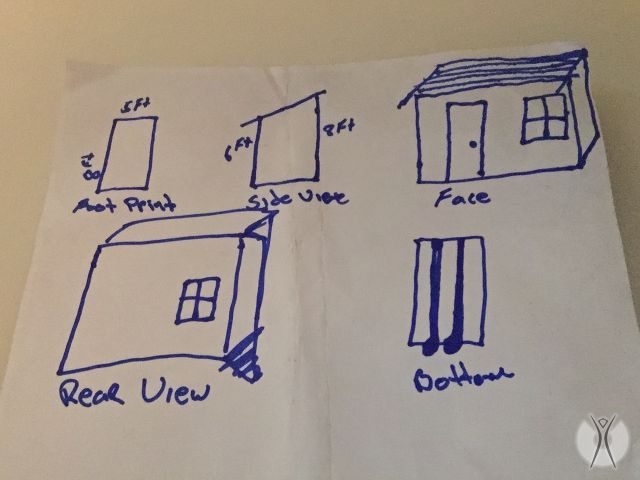 5 Ft
8 Ft
Foot Print
6 Ft
8 Ft
Side View
Face
Rear View
Bottom